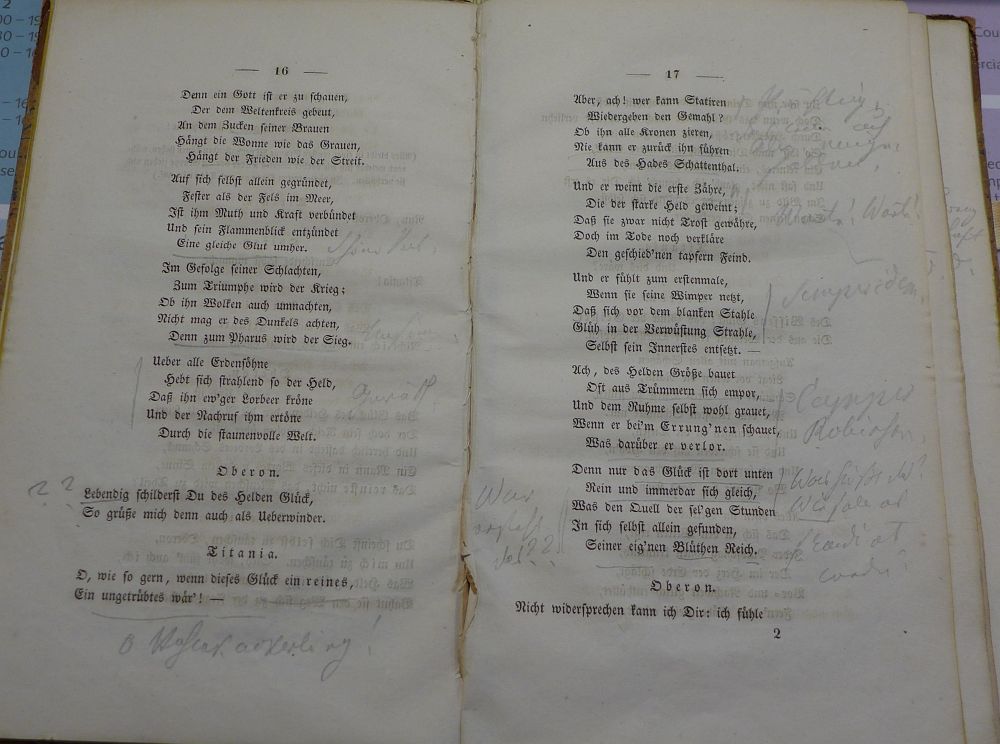 — 16 —
Denn ein Gott ist er zu schauen,
Der dem Weltenkreis gebeut,
An dem Zucken seiner Brauen
Hängt die Wonne wie das Grauen,
Hängt der Frieden wie der Streit.
Auf sich selbst allein gegründet,
Fester als der Fels im Meer,
Ist ihm Muth und Kraft verbündet
Und sein Flammenblick entzündet
Eine gleiche Glut umher.
Im Gefolge seiner Schlachten,
Zum Triumphe wird der Krieg;
Ob ihn Wolken auch umnachten,
Nicht mag er des Dunkels achten,
Denn zum Pharus wird der Sieg.
Ueber alle Erdensöhne
Hebt sich strahlend so der Held,
Daß ihn ew'ger Lorbeer kröne
Und der Nachruf ihm ertöne
Durch die staunenvolle Welt.
Oberon.
? ?
Lebendig schilderst Du des Helden Glück,
So grüße mich denn auch als Ueberwinder.
Titania.
O, wie so gern, wenn dieses Glück ein reines,
Ein ungetrübtes wär'! —
— 17 —
Aber, ach! wer kann Statiren
Wiedergeben den Gemahl?
Ob ihn alle Kronen zieren,
Nie kann er zurück ihn führen
Aus des Hades Schattenthal.
Und er weint die erste Zähre,
Die der starke Held geweint;
Daß sie zwar nicht Trost gewähre,
Doch im Tode noch verkläre
Den geschied'nen tapfern Feind.
Und er fühlt zum erstenmale,
Wenn sie seine Wimper netzt,
Daß sich vor dem blanken Stahle
Glüh in der Verwüstung Strahle,
Selbst sein Innerstes entsetzt. —
Ach, des Helden Größe bauet
Oft aus Trümmern sich empor,
Und dem Ruhme selbst wohl grauet,
Wenn er bei'm Errung'nen schauet,
Was darüber er verlor.
Denn nur das Glück ist dort unten
Rein und immerdar sich gleich,
Was den Quell der sel'gen Stunden
In sich selbst allein gefunden,
Seiner eig'nen Blüthen Reich.
Oberon.
Nicht widersprechen kann ich Dir: ich fühle
2